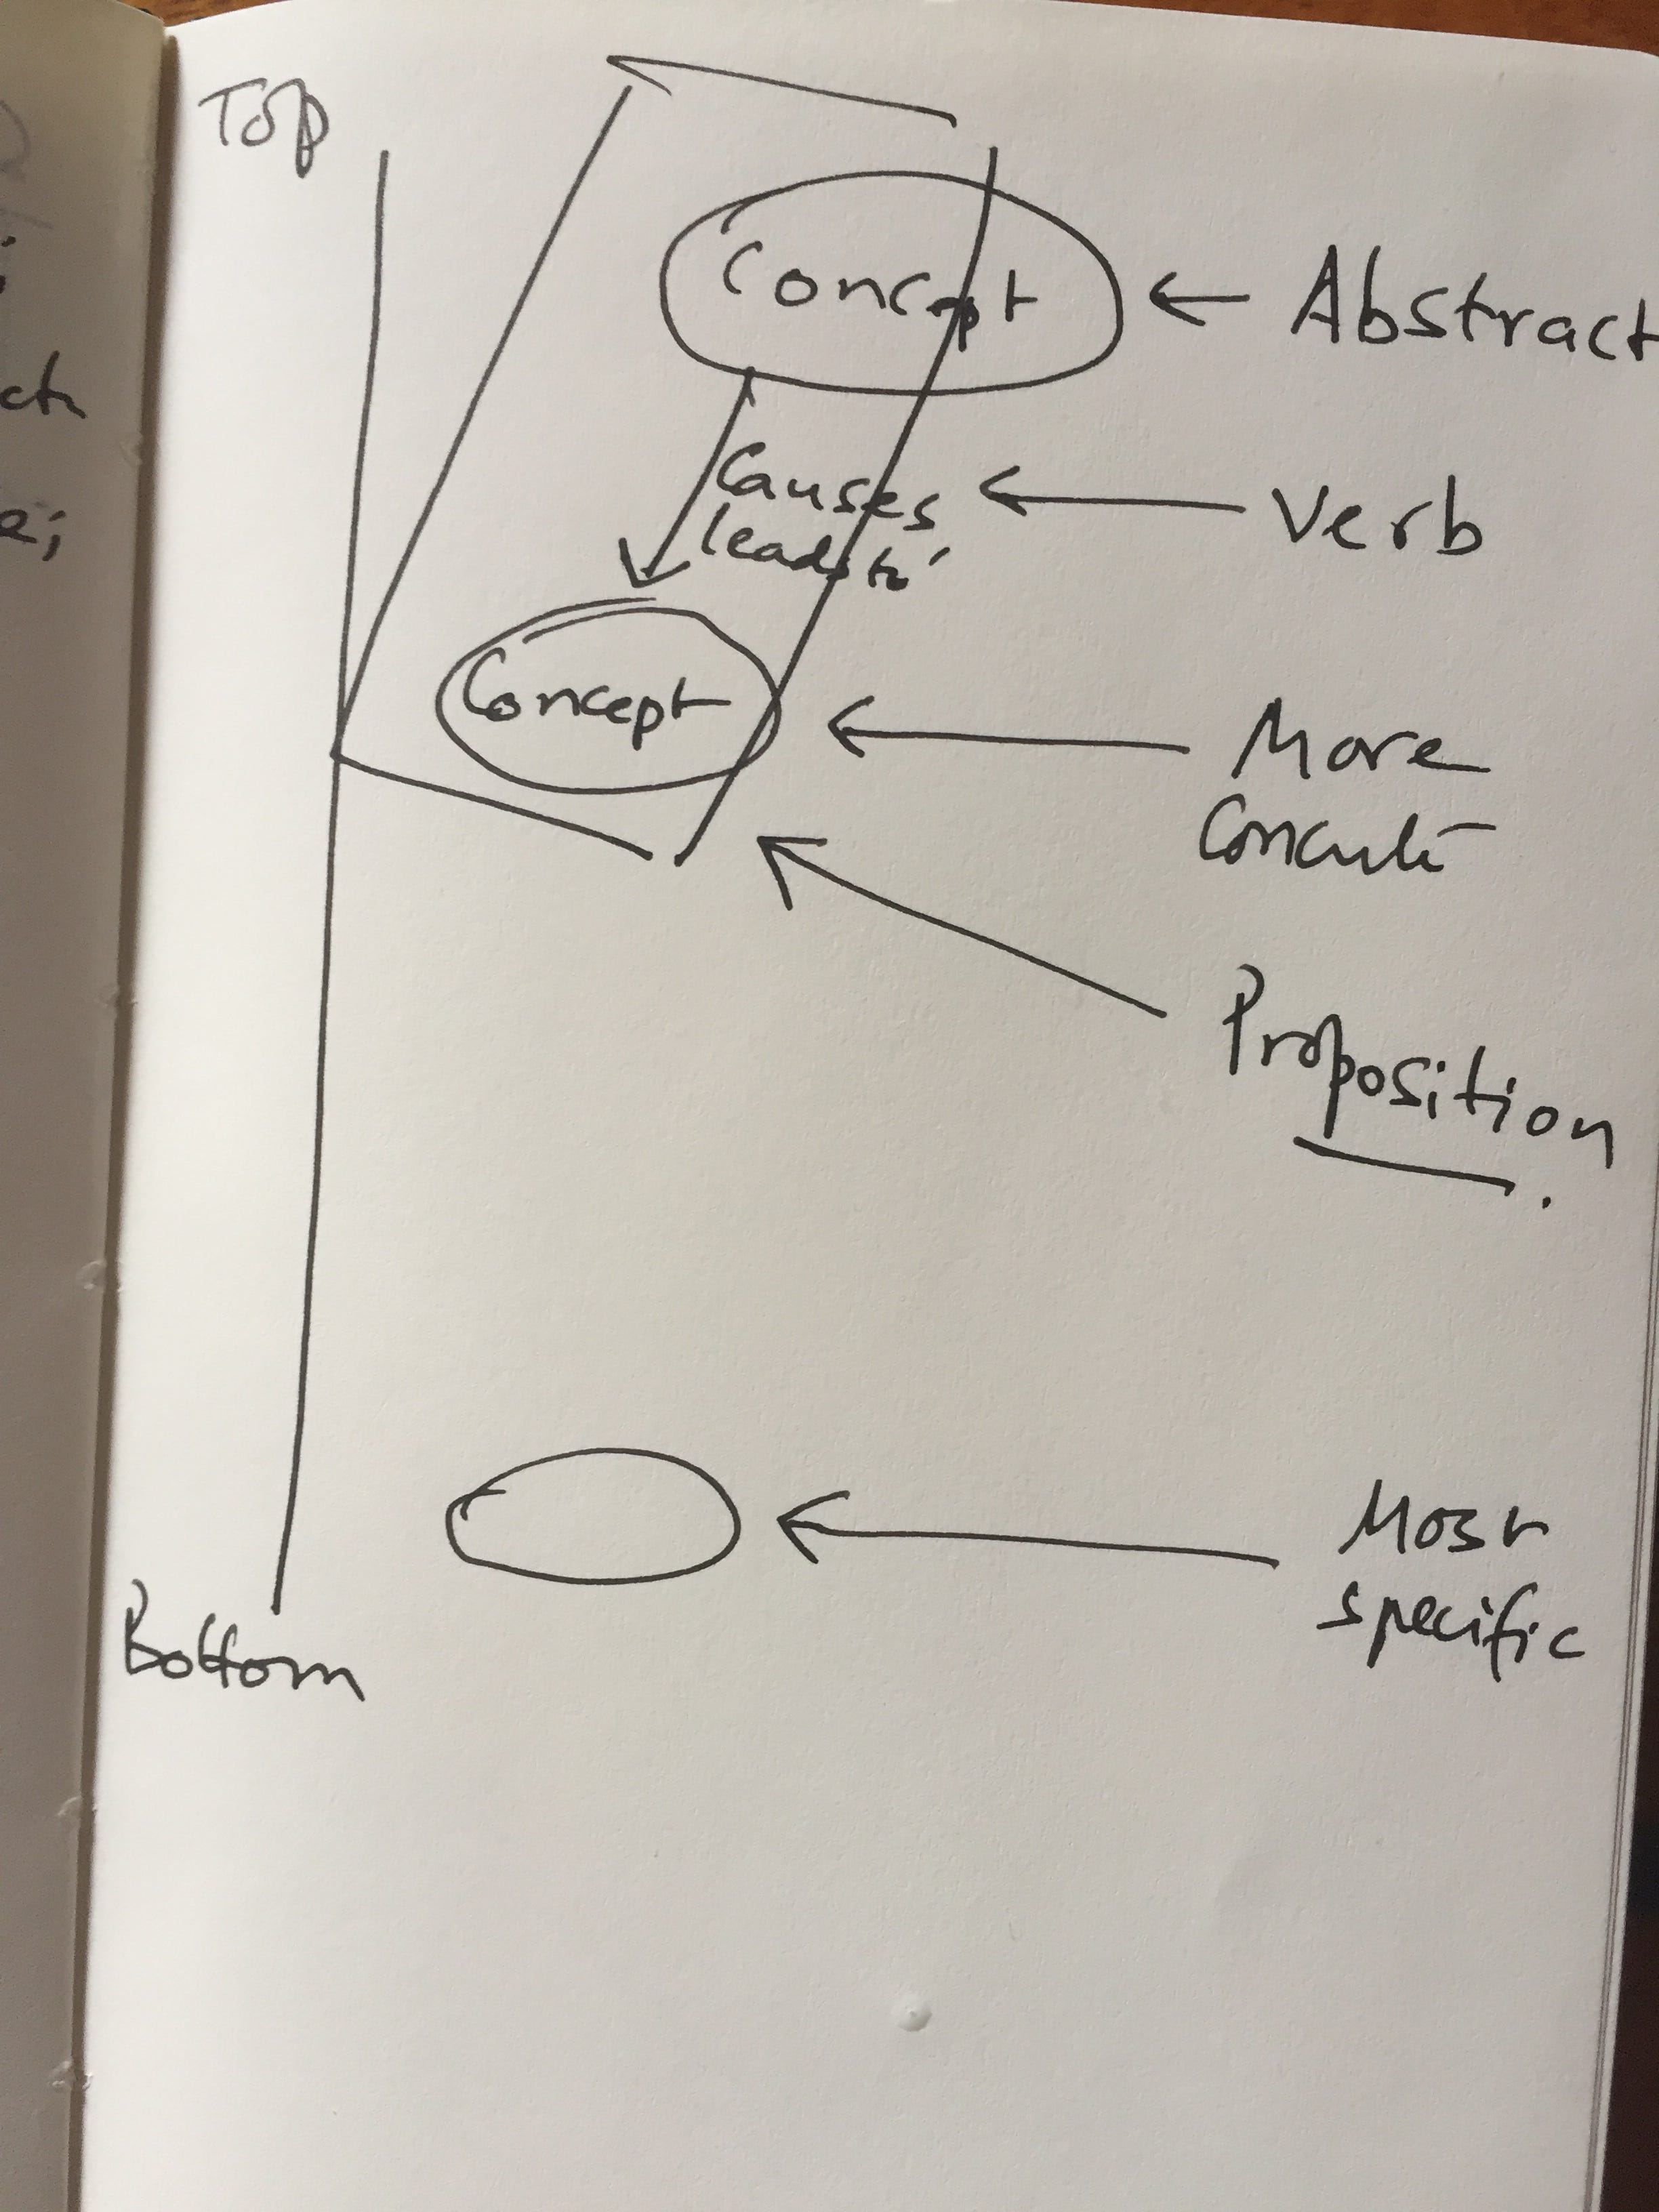 Top
Concept ← Abstract
Causes ← Verb
leads to
Concept ← More
Concrete
Proposition.
Most
specific
Bottom